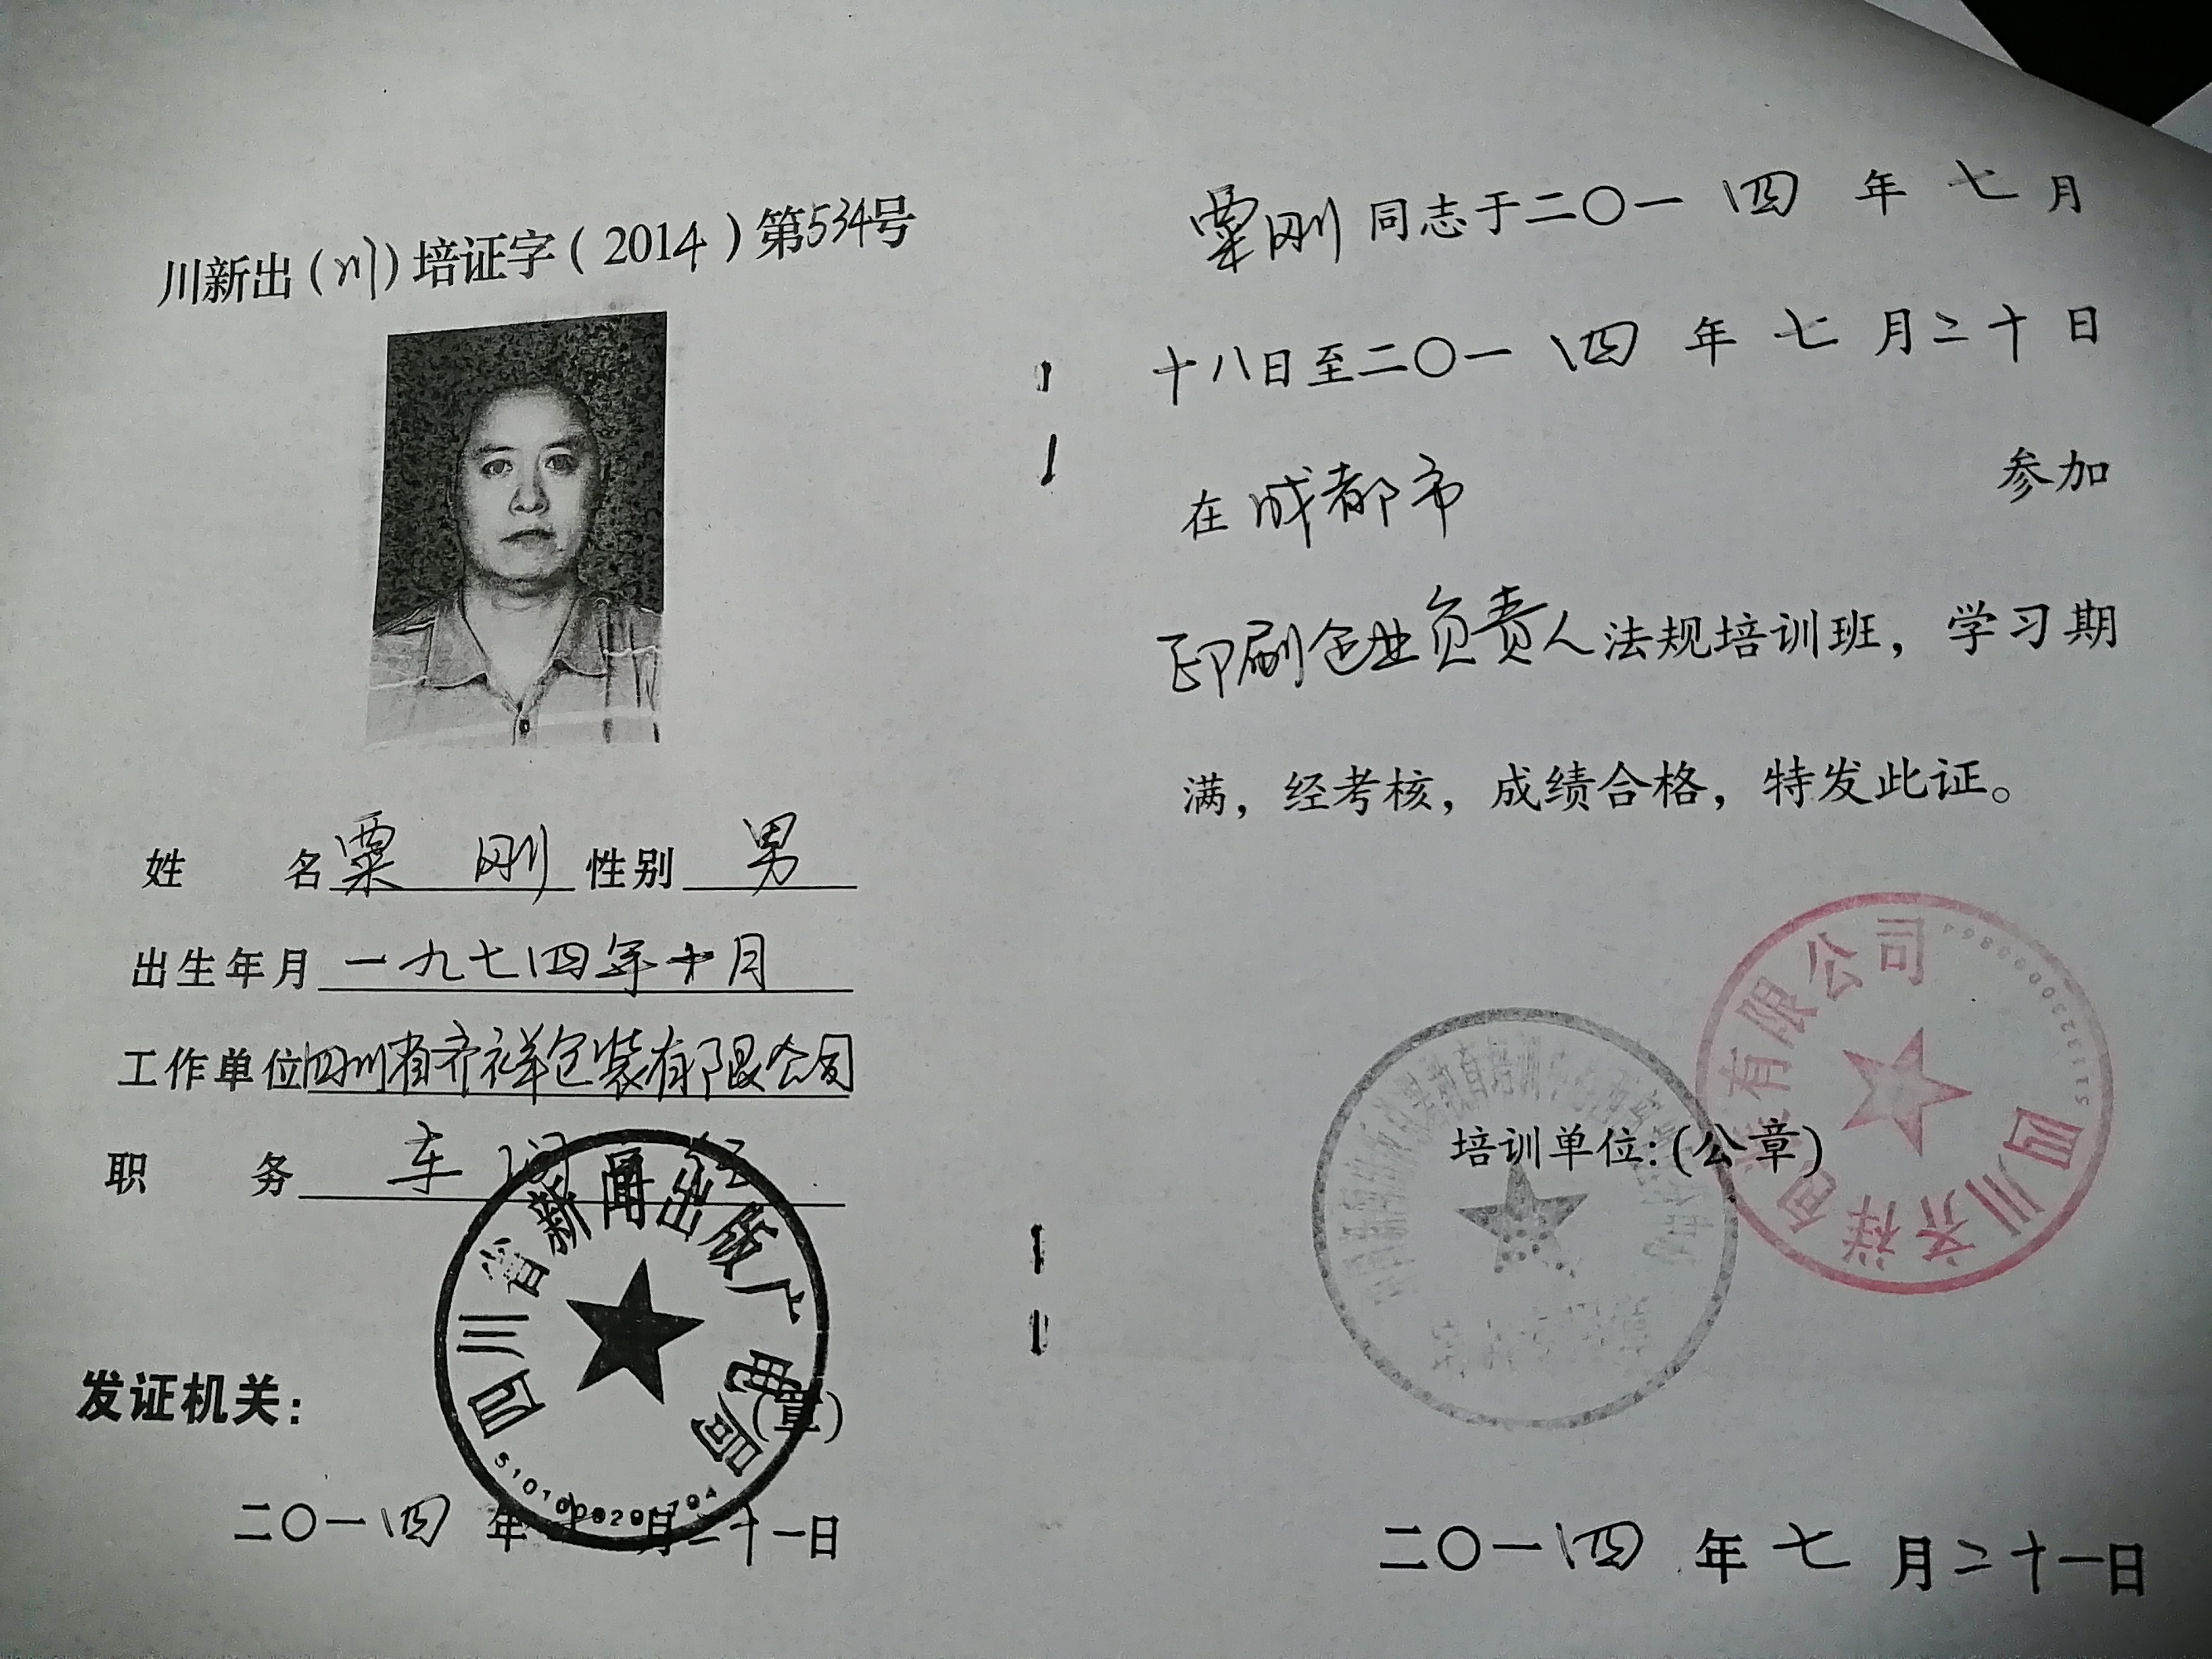 川新出（川）培证字（2014）第534号
姓 名 粟 刚 性别 男
出生年月 一九七四年十月
工作单位 四川省齐祥包装有限公司
职 务 车间
四川省新闻出版广电局
发证机关：
（章）
二〇一四年七月二十一日
粟刚同志于二〇一四年七月
十八日至二〇一四年七月二十日
在成都市 参加
印刷企业负责人法规培训班，学习期
满，经考核，成绩合格，特发此证。
培训单位：（公章）
四川齐祥包装有限公司
二〇一四年七月二十一日